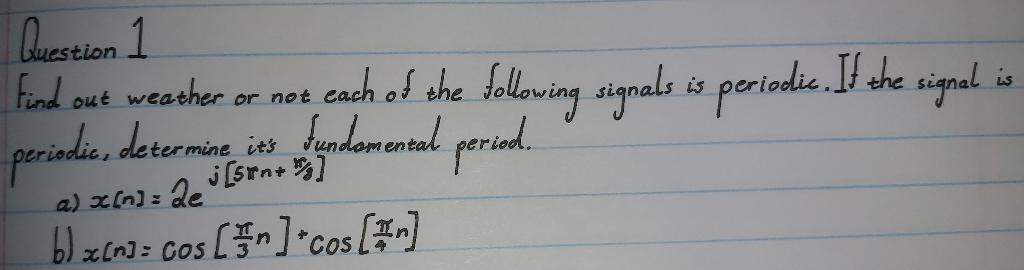 Question 1
Find out weather or not each of the following signals is periodic. If the signal is
periodic, determine it's fundamental period.
a) x[n] = 2e^j[5πn + π/8]
b) x[n] = cos[π/3 n] + cos[π/4 n]